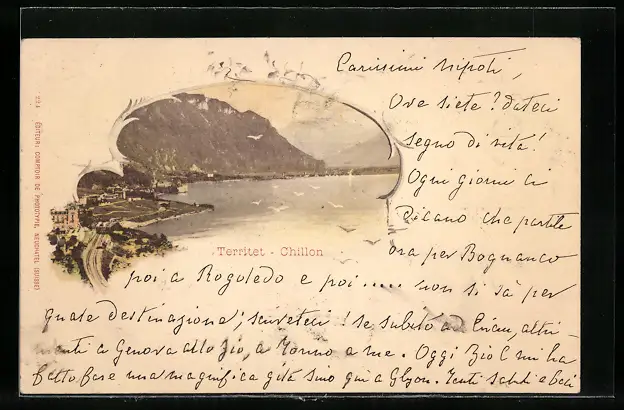 Carissimi nipoti,
Ove siete? dateci
segno di vita!
Ogni giorni ci
dicono che partite
ora per Bognanco
poi a Rogoledo e poi..... non si sà per
quale destinazione; scriveteci! Se subito a
altri-
menti a Genova allo zio, a Torino a me. Oggi Zio C mi ha
fatto fare una magnifica gita sino qui a Glyon. Tanti saluti e baci
Territet - Chillon
224 EDITEUR: COMPTOIR DE PHOTOTYPIE, NEUCHATEL (SUISSE)